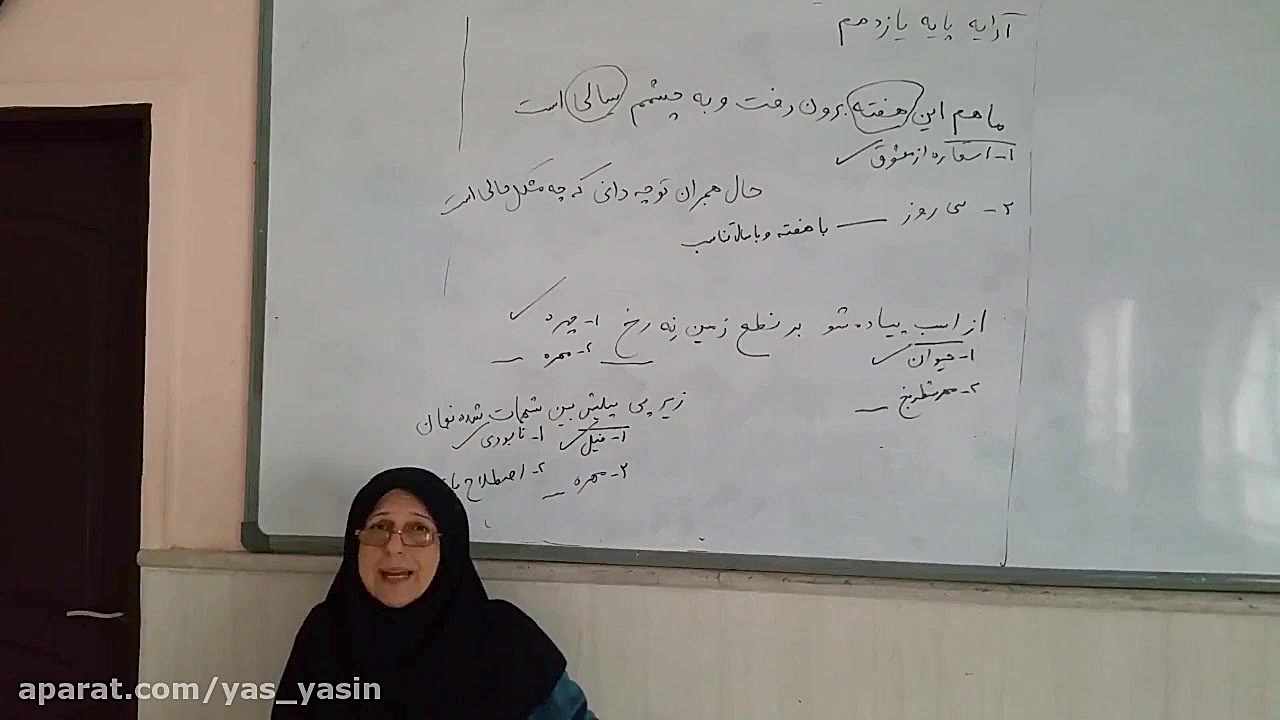 آرایه پایه یازدهم
ماهم این هفته برون رفت و به چشمم سالی است
۱- استعاره از معشوق ✓
حال هجران تو چه دانی که چه مشکل حالی است
۲- سی روز — با هفته و با سال تناسب
از اسب پیاده شو بر نطع زمین نِه رخ
۱- چهره ✓
۲- مهره —
۱- حیوان ✓
۲- مهره شطرنج —
زیر پی پیلش بین شهمات شده نعمان
۱- فیل ✓ ۱- نابودی ✓
۲- مهره — ۲- اصطلاح
aparat.com/yas_yasin